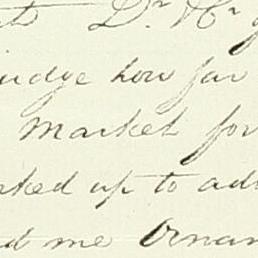 Dr Hr
judge how far
Market for
ked up to ad
d me Ornam